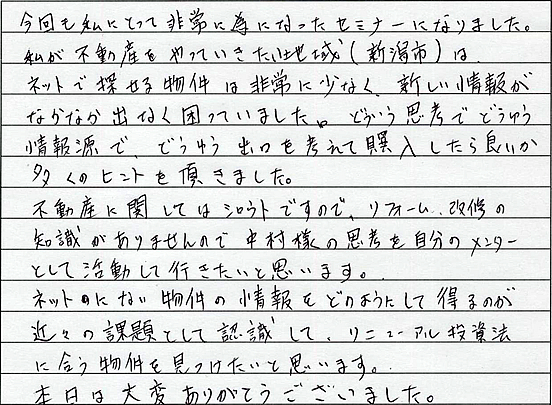 今回も私にとって非常に為になったセミナーになりました。
私が不動産をやっていきたい地域(新潟市)は
ネットで探せる物件は非常に少なく、新しい情報が
なかなか出なく困っていました。どういう思考でどうゆう
情報源で、どうゆう出口を考えて購入したら良いか
多くのヒントを頂きました。
不動産に関してはシロウトですので、リフォーム、改修の
知識がありませんので中村様の思考を自分のメンター
として活動して行きたいと思います。
ネットのにない物件の情報をどのようにして得るのが
近々の課題として認識して、リニューアル投資法
に合う物件を見つけたいと思います。
本日は大変ありがとうございました。